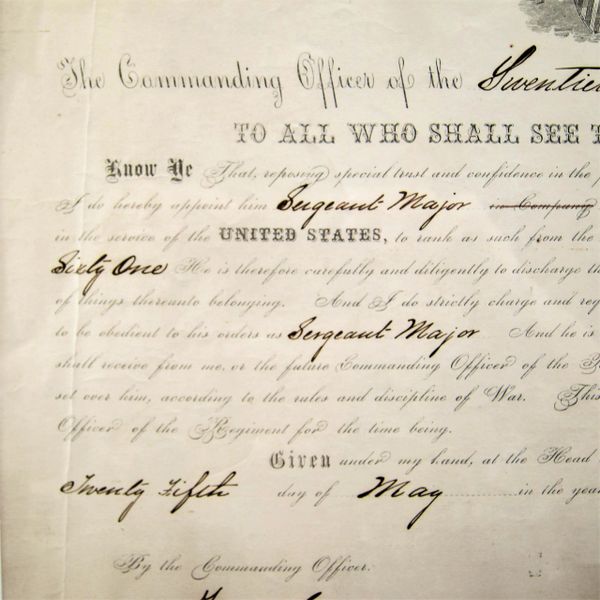 The Commanding Officer of the Twentie
TO ALL WHO SHALL SEE T
Know Ye That, reposing special trust and confidence in the p
I do hereby appoint him Sergeant Major in Company
in the service of the UNITED STATES, to rank as such from the
Sixty One He is therefore carefully and diligently to discharge th
of things thereunto belonging. And I do strictly charge and req
to be obedient to his orders as Sergeant Major And he is
shall receive from me, or the future Commanding Officer of the
set over him, according to the rules and discipline of War. This
Officer of the Regiment for the time being.
Given under my hand, at the Head
Twenty Fifth day of May in the year
By the Commanding Officer.